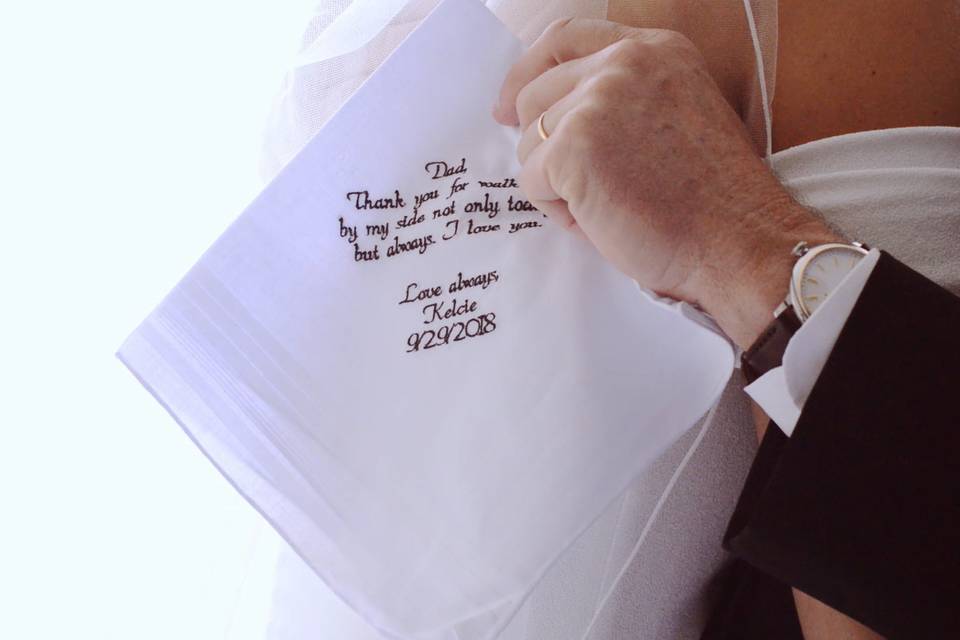 Dad,
Thank you for walk
by my side not only toda
but always. I love you.
Love always,
Kelcie
9/29/2018